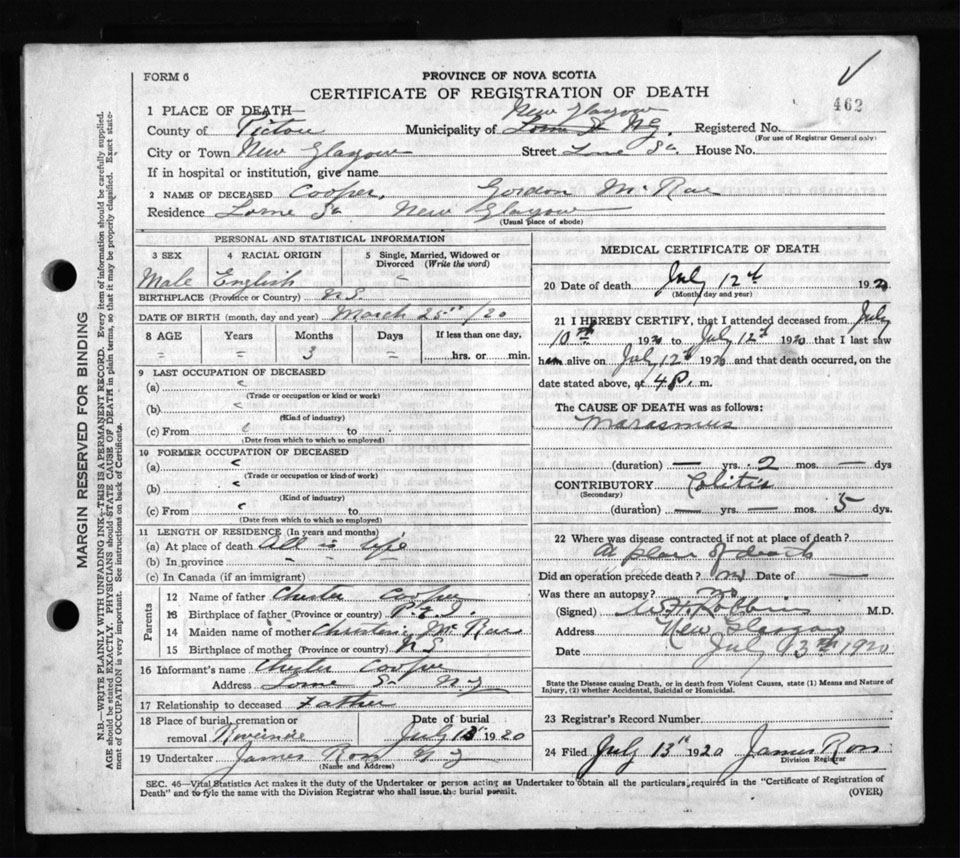 FORM 6
PROVINCE OF NOVA SCOTIA
CERTIFICATE OF REGISTRATION OF DEATH
462
1 PLACE OF DEATH— New Glasgow
County of Pictou Municipality of N G. Registered No.
(For use of Registrar General only)
City or Town New Glasgow Street Lorne St. House No.
If in hospital or institution, give name
2 NAME OF DECEASED Cooper, Gordon McRae
Residence Lorne St New Glasgow
(Usual place of abode)
MARGIN RESERVED FOR BINDING
N.B.—WRITE PLAINLY, WITH UNFADING INK—THIS IS A PERMANENT RECORD. Every item of information should be carefully supplied.
AGE should be stated EXACTLY. PHYSICIANS should STATE CAUSE OF DEATH in plain terms, so that it may be properly classified. Exact state-
ment of OCCUPATION is very important. See instructions on back of Certificate.
PERSONAL AND STATISTICAL INFORMATION
3 SEX 4 RACIAL ORIGIN 5 Single, Married, Widowed or
Divorced (Write the word)
Male English S.
BIRTHPLACE (Province or Country) N S.
DATE OF BIRTH (month, day and year) March 25th /20
8 AGE Years Months Days If less than one day,
= = 3 = hrs. or min.
9 LAST OCCUPATION OF DECEASED
(a)
(Trade or occupation or kind or work)
(b)
(Kind of industry)
(c) From to
(Date from which to which so employed)
10 FORMER OCCUPATION OF DECEASED
(a)
(Trade or occupation or kind of work)
(b)
(Kind of industry)
(c) From to
(Date from which to which so employed)
11 LENGTH OF RESIDENCE (In years and months)
(a) At place of death All is life
(b) In province –
(c) In Canada (if an immigrant)
Parents
12 Name of father Chester Cooper
13 Birthplace of father (Province or country) P.E.I.
14 Maiden name of mother Christine McRae
15 Birthplace of mother (Province or country) N S
16 Informant's name Chester Cooper
Address Lorne St N G
17 Relationship to deceased Father
18 Place of burial, cremation or Date of burial
removal Riverside July 13 1920
19 Undertaker James Ross N G
(Name and Address)
MEDICAL CERTIFICATE OF DEATH
20 Date of death July 12th 1920
(Month day and year)
21 I HEREBY CERTIFY, that I attended deceased from July
10th 1920 to July 12th 1920 that I last saw
him alive on July 12th 1920 and that death occurred, on the
date stated above, at 4 P. m.
The CAUSE OF DEATH was as follows:
Marasmus
(duration) — yrs. 2 mos. — dys
CONTRIBUTORY Colitis
(Secondary)
(duration) — yrs. — mos. 5 dys.
22 Where was disease contracted if not at place of death?
At place of death
Did an operation precede death? no Date of —
Was there an autopsy? no
(Signed) Robbins M.D.
Address New Glasgow
Date July 13th 1920
State the Disease causing Death, or in death from Violent Causes, state (1) Means and Nature of
Injury, (2) whether Accidental, Suicidal or Homicidal.
23 Registrar's Record Number
24 Filed July 13th 1920 James Ross
Division Registrar
SEC. 46—Vital Statistics Act makes it the duty of the Undertaker or person acting as Undertaker to obtain all the particulars required in the "Certificate of Registration of
Death" and to fyle the same with the Division Registrar who shall issue the burial permit.
(OVER)